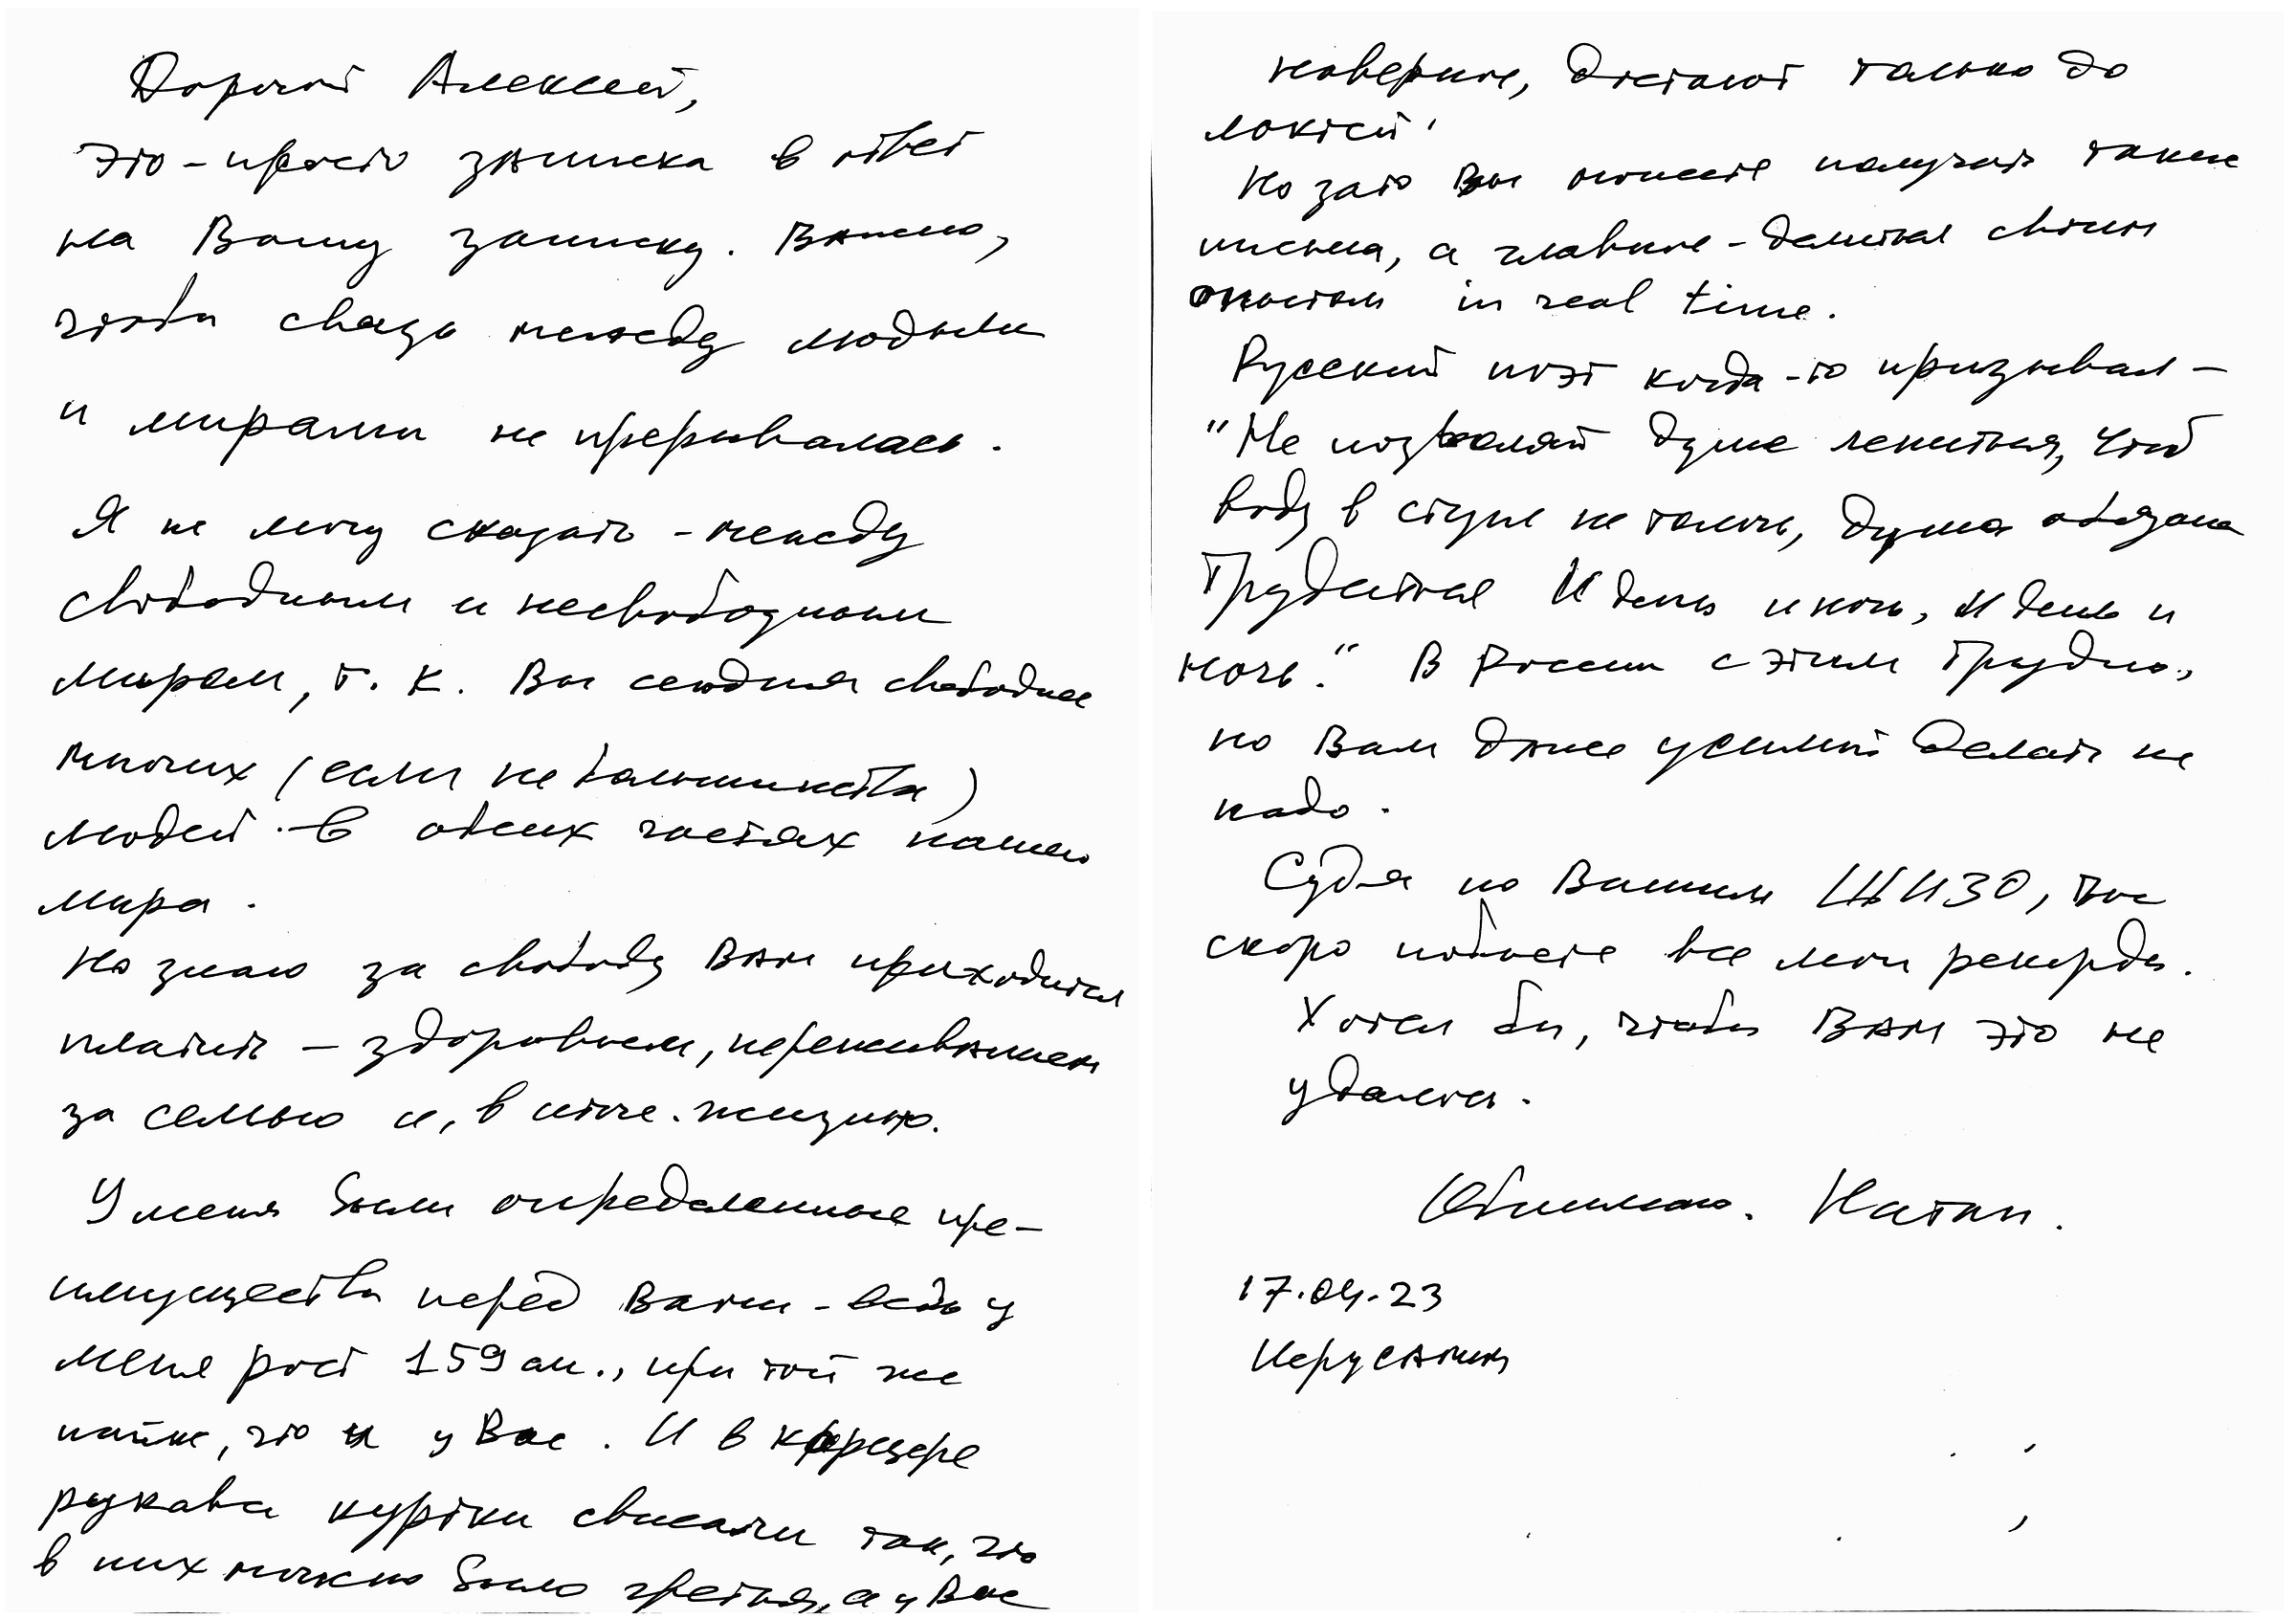 Дорогой Алексей,
Это - просто записка в ответ
на Вашу записку. Важно,
чтобы связь между людьми
и мирами не прерывалась.
Я не могу сказать - между
свободным и несвободным
миром, т. к. Вы сегодня свободнее
многих (если не большинства)
людей в обеих частях нашего
мира.
Но знаю за свободу Вам приходится
платить — здоровьем, переживанием
за семью и, в итоге. жизнью.
У меня были определенные пре-
имущества перед Вами - ведь у
меня рост 159 см., при той же
пайке, что и у Вас. И в карцере
рукава куртки свисали так, что
в них можно было греться, а у Вас
наверное, достают только до
локтей.
Но зато Вы можете получать такие
письма, а главное - делиться своим
опытом in real time.
Русский поэт когда-то призывал —
"Не позволяй душе лениться, Чтоб
воду в ступе не толочь, душа обязана
Трудиться И день и ночь, И день и
ночь." В России с этим трудно,
но Вам даже усилий делать не
надо.
Судя по Вашим ШИЗО, Вы
скоро побьете все мои рекорды.
Хотел бы, чтобы Вам это не
удалось.
Обнимаю. Натан.
17.04.23
Иерусалим